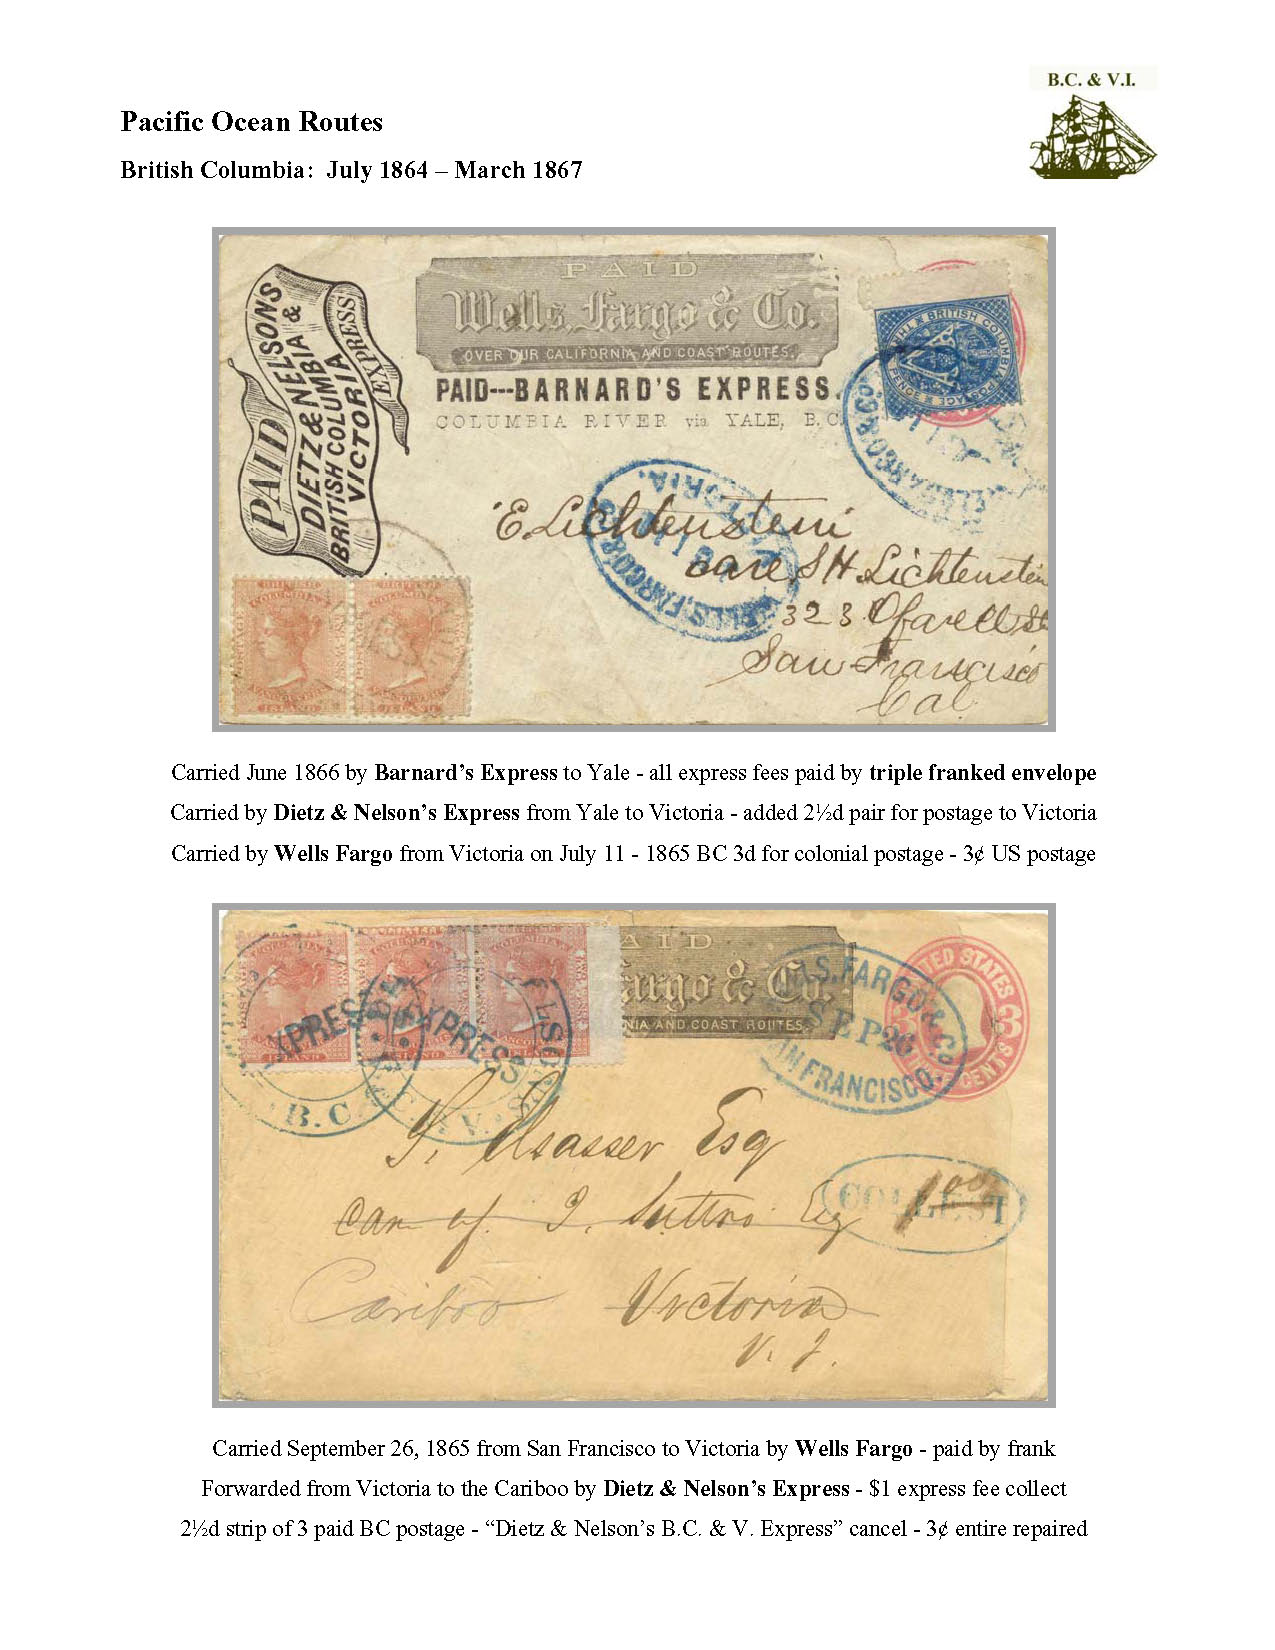 B.C. & V.I.
Pacific Ocean Routes
British Columbia: July 1864 – March 1867
PAID
DIETZ & NELSONS
BRITISH COLUMBIA &
VICTORIA
EXPRESS
PAID
Wells, Fargo & Co.
OVER OUR CALIFORNIA AND COAST ROUTES.
PAID---BARNARD'S EXPRESS.
COLUMBIA RIVER via YALE, B.C
BRITISH COLUMBIA POSTAGE
E. Lichtenstein
care S H. Lichtenstein
323 Ofarell St
San Francisco
Cal
BRITISH
COLUMBIA
VANCOUVERS
ISLAND
BRITISH
COLUMBIA
VANCOUVERS
ISLAND
Carried June 1866 by Barnard's Express to Yale - all express fees paid by triple franked envelope
Carried by Dietz & Nelson's Express from Yale to Victoria - added 2½d pair for postage to Victoria
Carried by Wells Fargo from Victoria on July 11 - 1865 BC 3d for colonial postage - 3¢ US postage
AID
argo & Co.
NIA AND COAST ROUTES.
LS, FARGO & Co
SEP 26
N FRANCISCO.
UNITED STATES
3 3
CENTS
XPRESS
EXPRESS
B.C.
Elsasser Esq
Care of J. Suttro Esq
COLLECT
1.00
Cariboo Victoria
V. I.
Carried September 26, 1865 from San Francisco to Victoria by Wells Fargo - paid by frank
Forwarded from Victoria to the Cariboo by Dietz & Nelson's Express - $1 express fee collect
2½d strip of 3 paid BC postage - “Dietz & Nelson's B.C. & V. Express” cancel - 3¢ entire repaired